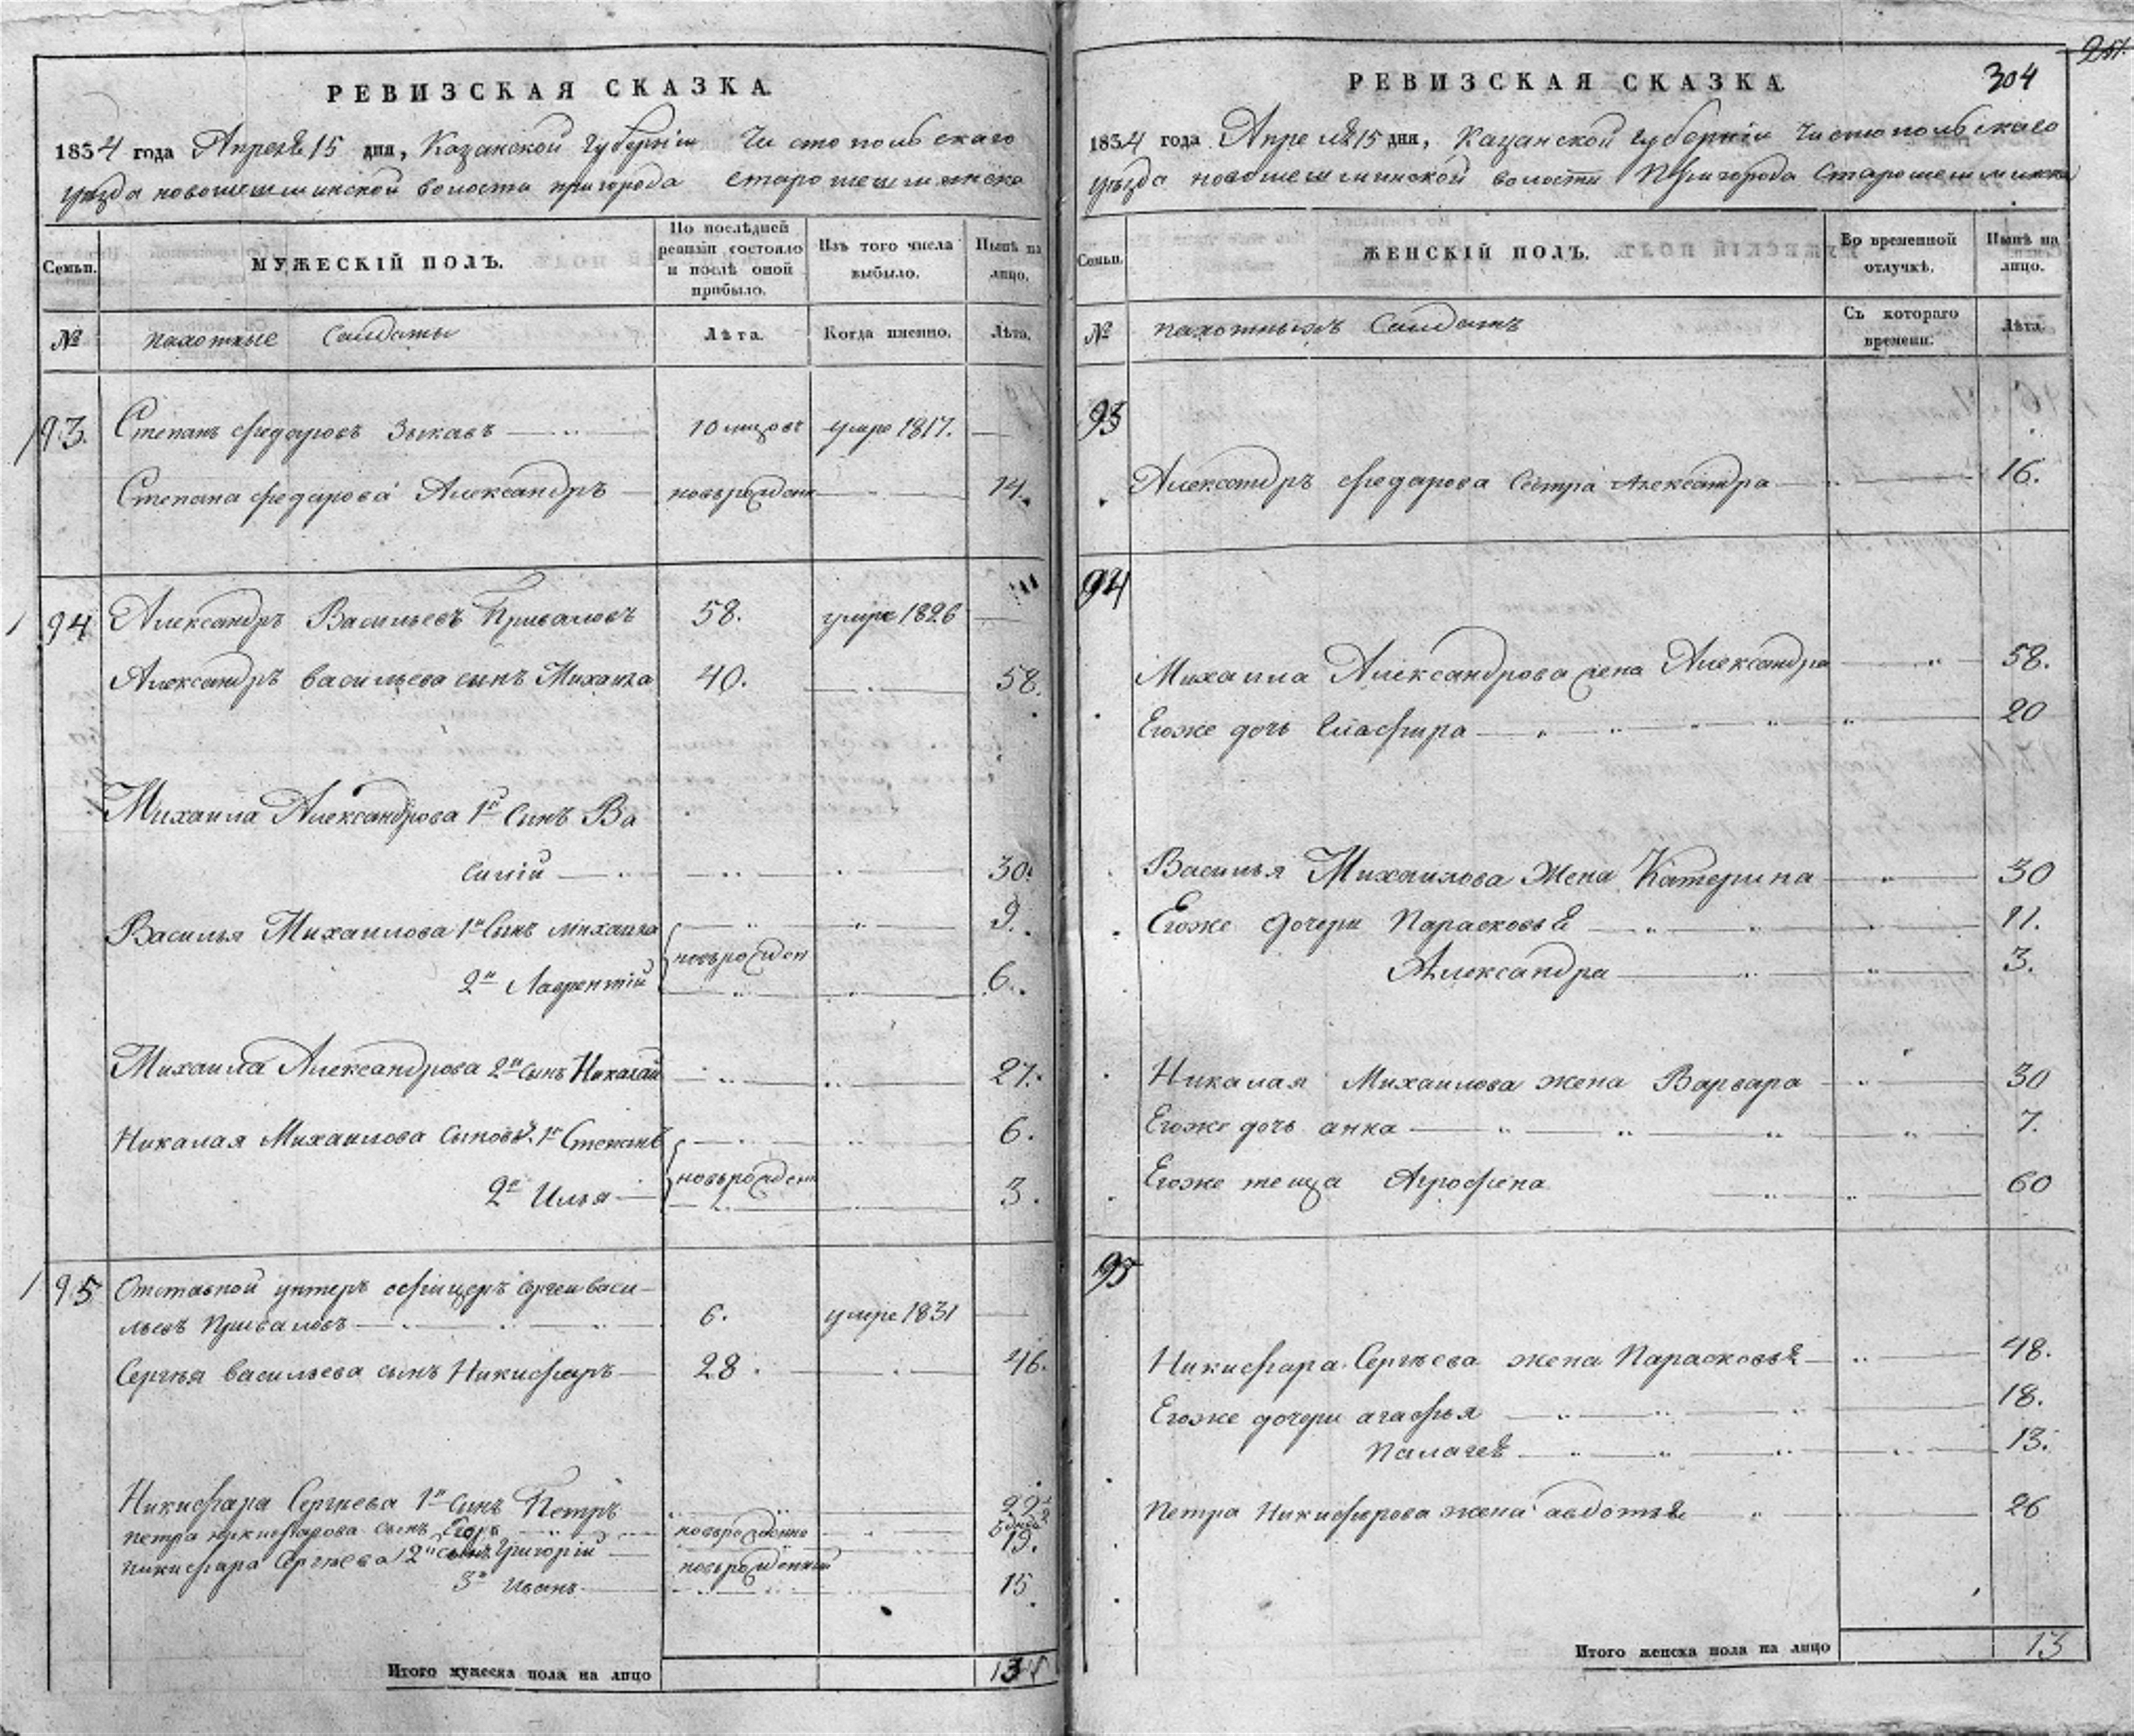 РЕВИЗСКАЯ СКАЗКА.
1834 года Апреля 15 дня, Казанской Губернiи Чистопольскаго
уѣзда новошешминской волости пригорода старошешминска
Семьи.
МУЖЕСКІЙ ПОЛЪ.
По послѣдней ревизіи состояло и послѣ оной прибыло.
Изъ того числа выбыло.
Нынѣ на лицо.
№
пахотные Салдаты
Лѣта.
Когда именно.
Лѣта.
93. Степанъ Федоровъ Зыкавъ 10 умре 1817.
Степана федарова Александръ новърожден 14.
94 Александръ Васильевъ Приваловъ 58. умре 1826
Александръ васильева сынъ Михаила 40. 58.
Михаила Александрова 1й Сынъ Ва
силiй 30.
Василья Михаилова 1й Сынъ михаила 9.
новърожден
2й Лаврентiй 6.
Михаила Александрова 2й сынъ Никалай 27.
Никалая Михаилова Сыновья 1й Степанъ 6.
новърожден
2й Илья 3.
95 Отставной унтеръ офицеръ Сергеи васи-
льевъ Приваловъ 6. умре 1831
Сергѣя васильева сынъ Никифаръ 28. 46.
Никифара Сергѣева 1й Сынъ Петръ 22
петра никифарова сынъ Егоръ новърожденно
никифара Сергѣева 2й сынъ Григорiй новърожденный 19.
3й Иванъ 15
Итого мужеска пола на лицо 13
251.
304
РЕВИЗСКАЯ СКАЗКА.
1834 года Апреля 15 дня, Казанской губернiи Чистопольскаго
уѣзда новошешминской волости Пригорода Старошешминска
Семьи.
ЖЕНСКІЙ ПОЛЪ.
Во временной отлучкѣ.
Нынѣ на лицо.
№
пахотныхъ Салдатъ
Съ котораго времени.
Лѣта.
93
Александръ федарова Сестра Александра 16.
94
Михаила Александрова жена Александра 58.
Егоже дочь Глафира 20
Василья Михаилова Жена Катерина 30
Егоже дочери Парасковья 11.
Александра 3.
Никалая Михаилова жена Варвара 30
Егоже дочь анна 7.
Егоже теща Агрофена 60
95
Никифара Сергѣева жена Парасковья 48.
Егоже дочери агафья 18.
Палагея 13.
Петра Никифорова жена авдотья 26
Итого женска пола на лицо 13